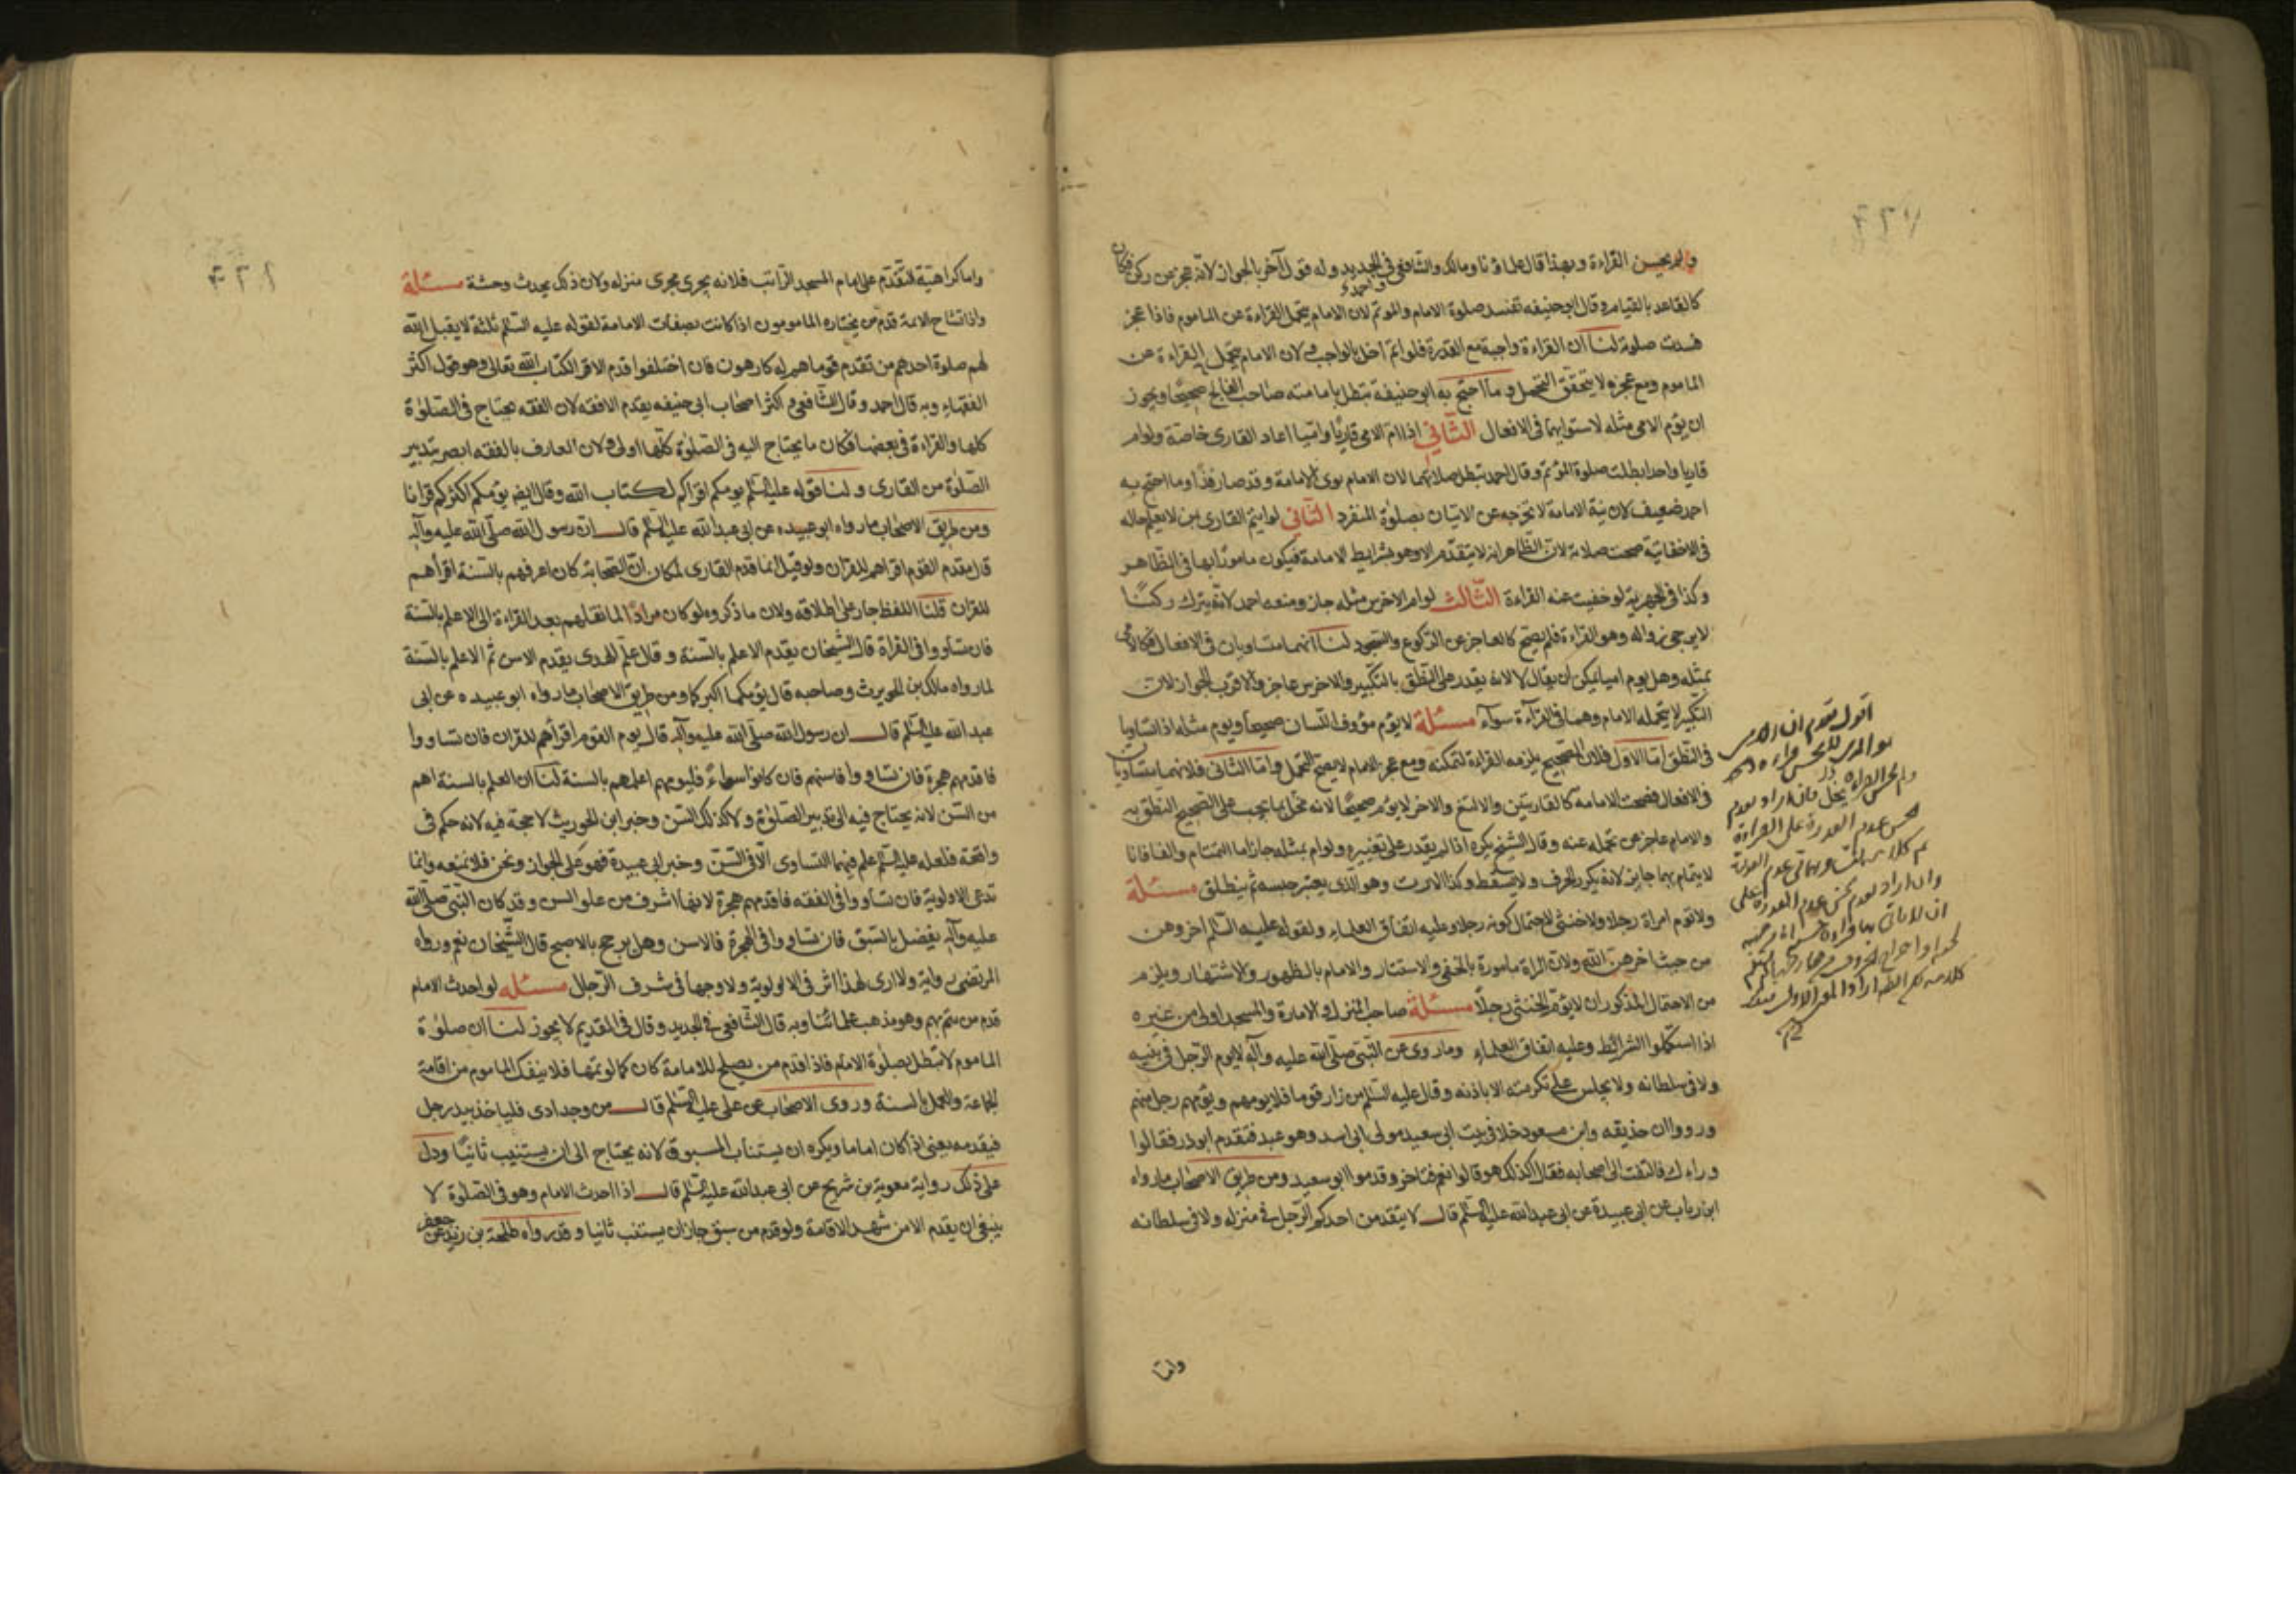 ولم يحسن القراءة وبهذا قال علماؤنا ومالك والشافعي في الجديد وله قول آخر بالجواز لانه عجز عن ركن فكان
واحمد
كالقاعد بالقيام وقال ابو حنيفه تفسد صلوة الامام والموتم لان الامام يتحمل القراءة عن الماموم فاذا عجز
فسدت صلوته لنا ان القراءة واجبة مع القدرة فلو ائتم اخل بالواجب ولان الامام يتحمل القراءة عن
الماموم ومع عجزه لا يتحقق التحمل وما احتج به ابو حنيفة تبطل بامامته صاحب الفالج صحيحا ويجوز
ان يؤم الامى مثله لاستوايهما فى الافعال الثاني اذا ام الامى قاريا واميا اعاد القارى خاصة ولو ام
قاريا واحدا بطلت صلوة المؤتم وقال احمد تبطل صلاتهما لان الامام نوى الامامة وقد صار فذا وما احتج به
احمد ضعيف لان نية الامامة لا تخرجه عن الاتيان بصلوة المنفرد الثاني لو ايتم القارى بمن لا يعلم حاله
فى الاخفاتية صحت صلاته لان الظاهر انه لا يتقدم الا وهو بشرايط الامامة فيكون مامورا بها فى الظاهر
وكذا فى الجهرية لو خفيت عنه القراءة الثالث لو ام الاخرس مثله جاز ومنعه احمد لانه يترك ركنا
لا يرجى زواله وهو القراءة فلم يصح كالعاجز عن الركوع والسجود لنا انهما متساويان فى الافعال فكالامى
بمثله وهل يوم اميا يمكن ان يقال لا لانه يقدر على النطق بالتكبير والاخرس عاجز والاقرب الجواز لان
التكبير لا يتحمله الامام وهما فى القراءة سواء مسئلة لا يؤم مؤوف اللسان صحيحا ويوم مثله اذا تساويا
فى النطق اما الاول فلان الصحيح يلزمه القراءة لتمكنه ومع عجز الامام لا يصح التحمل واما الثانى فلانهما متساويان
فى الافعال فصحت الامامة كالقاريين والالثغ والاخر لا يؤم صحيحا لانه مخل بما يجب على الصحيح النطق به
والامام عاجز عن تحمله عنه وقال الشيخ يكره اذا لم يقدر على تغييره ولو ام بمثله جاز اما التمتام والفافا فالا
لايتمام بهما جايز لانه يكرر الحرف ولا يسقط وكذا الارت وهو الذى يعتبر حبسه ثم ينطلق مسئلة
ولا تؤم امراة رجلا ولا خنثى لاحتمال كونه رجلا وعليه اتفاق العلماء ولقوله عليه السلم اخروهن
من حيث اخرهن الله ولان المراة مامورة بالتخفى والاستتار والامام بالظهور والاشتهار ويلزم
من الاحتمال المذكور ان لا يؤم الخنثى رجلا مسئلة صاحب المنزل والامارة والمسجد اولى من غيره
اذا استكملوا الشرائط وعليه اتفاق العلماء وما روى عن النبى صلى الله عليه وآله لا يوم الرجل فى بيته
ولا فى سلطانه ولا يجلس على تكرمته الا باذنه وقال عليه السلم من زار قوما فلا يومهم ويؤمهم رجل منهم
ورووا ان حذيفه وابن مسعود خلا فى بيت ابى سعيد مولى ابى اسيد وهو عبد فتقدم ابو ذر فقالوا
وراءك فالتفت الى اصحابه فقال اكذلك هو قالوا نعم فتاخر وقدموا ابو سعيد ومن طريق الاصحاب ما رواه
ابن رياب عن ابى عبيدة عن ابى عبدالله عليه السلم قال لا يتقدمن احدكم الرجل فى منزله ولا فى سلطانه
واما
واما كراهية التقدم على امام المسجد الراتب فلانه يجرى مجرى منزله ولان ذلك يحدث وحشة مسئلة
واذا تشاح الائمة قدم من يختاره المامومون اذا كانت بصفات الامامة لقوله عليه السلم ثلثة لا يقبل الله
لهم صلوة احدهم من تقدم قوما هم له كارهون فان اختلفوا قدم الاقرا لكتاب الله تعالى وهو قول اكثر
الفقهاء وبه قال احمد وقال الشافعى واكثر اصحاب ابى حنيفه يقدم الافقه لان الفقه يحتاج فى الصلوة
كلها والقراءة فى بعضها فكان ما يحتاج اليه فى الصلوة كلها اولى ولان العارف بالفقه ابصر بتدبير
الصلوة من القارى ولنا قوله عليه السلم يومكم اقراكم لكتاب الله وقال ايضا يؤمكم اكثركم قرانا
ومن طريق الاصحاب ما رواه ابو عبيده عن ابى عبدالله عليه السلم قال ان رسول الله صلى الله عليه وآله
قال يقدم القوم اقراهم للقران ولو قيل انما قدم القارى لمكان ان الصحابة كان اعرفهم بالسنة اقراهم
للقران قلنا اللفظ جار على اطلاقه ولان ما ذكروه لو كان مرادا لما نقلهم بعد القراءة الى الاعلم بالسنة
فان تساووا فى القراة قال الشيخان يقدم الاعلم بالسنة وقال علم الهدى يقدم الاسن ثم الاعلم بالسنة
لما رواه مالك بن الحويرث وصاحبه قال يؤمكما اكبركما ومن طريق الاصحاب ما رواه ابو عبيده عن ابى
عبدالله عليه السلم قال ان رسول الله صلى الله عليه وآله قال يوم القوم اقرأهم للقران فان تساووا
فاقدمهم هجرة فان تساووا فاسنهم فان كانوا سواء فليومهم اعلمهم بالسنة لنا ان العلم بالسنة اهم
من السن لانه يحتاج فيه الى تدبير الصلوة ولا كذلك السن وخبر ابن الحويرث لا حجة فيه لانه حكم فى
واقعة فلعله عليه السلم علم فيهما التساوى الا فى السن وخبر ابى عبيدة فهو على الجواز ونحن فلا نمنعه وانما
ندعى الاولوية فان تساووا فى الفقه فاقدمهم هجرة لانها اشرف من علو السن وقد كان النبى صلى الله
عليه وآله يفضل بالسبق فان تساووا فى الهجرة فالاسن وهل يرجح بالاصبح قال الشيخان نعم ورواه
المرتضى رواية ولا ارى لهذا اثر فى الاولوية ولا وجها فى شرف الرجال مسئله لو احدث الامام
قدم من يتم بهم وهو مذهب علمائنا وبه قال الشافعى فى الجديد وقال فى القديم لا يجوز لنا ان صلوة
الماموم لا تبطل بصلوة الامام فاذا قدم من يصلح للامامة كان كما لو تمها فلا ينفك الماموم من اقامة
الجماعة والعمل بالسنة وروى الاصحاب عن على عليه السلم قال من وجد اذى فلياخذ بيد رجل
فيقدمه يعنى اذا كان اماما ويكره ان يستناب المسبوق لانه يحتاج الى ان يستنيب ثانيا ودل
على ذلك رواية معوية بن شريح عن ابى عبدالله عليه السلم قال اذا احدث الامام وهو فى الصلوة لا
ينبغى ان يقدم الا من شهد الاقامة ولو قدم من سبق جاز ان يستنب ثانيا وقد رواه طلحة بن زيد عن جعفر